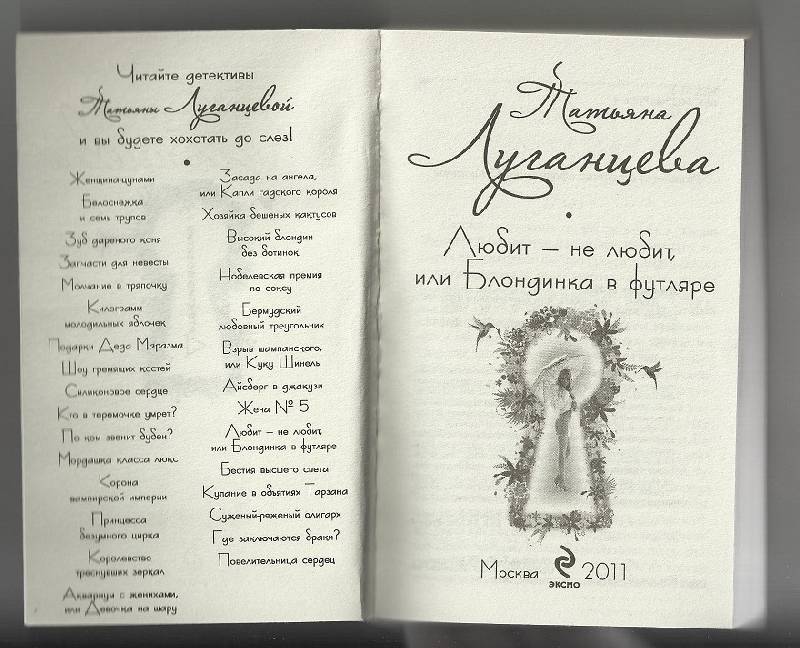 Читайте детективы
Татьяны Луганцевой
и вы будете хохотать до слез!
Женщина-цунами
Белоснежка
и семь трупов
Зуб дареного коня
Запчасти для невесты
Молчание в тряпочку
Килограмм
молодильных яблочек
Подарки Деда Маразма
Шоу гремящих костей
Силиконовое сердце
Кто в теремочке умрет?
По ком звенит бубен?
Мордашка класса люкс
Корона
вампирской империи
Принцесса
безумного цирка
Королевство
треснувших зеркал
Аквариум с женихами,
или Девочка на шару
Засада на ангела,
или Капли гадского короля
Хозяйка бешеных кактусов
Высокий блондин
без ботинок
Нобелевская премия
по сексу
Бермудский
любовный треугольник
Взрыв шампанского,
или Куку Шинель
Айсберг в джакузи
Жена № 5
Любит – не любит,
или Блондинка в футляре
Бестия высшего света
Купание в объятиях Тарзана
Суженый-ряженый олигарх
Где заключаются браки?
Повелительница сердец
Татьяна
Луганцева
Любит – не любит,
или Блондинка в футляре
Москва ЭКСМО 2011